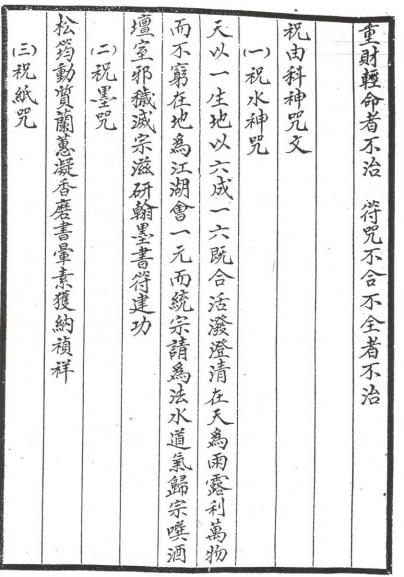 重財輕命者不治　符咒不合不全者不治
祝由科神咒文
(一)祝水神咒
天以一生地以六成一六既合活潑澄清在天為雨露利萬物
而不窮在地為江湖會一元而統宗請為法水道氣歸宗噀洒
壇室邪穢滅宗滋研翰墨書符建功
(二)祝墨咒
松筠動質蘭蕙凝香磨書暈素獲納禎祥
(三)祝紙咒